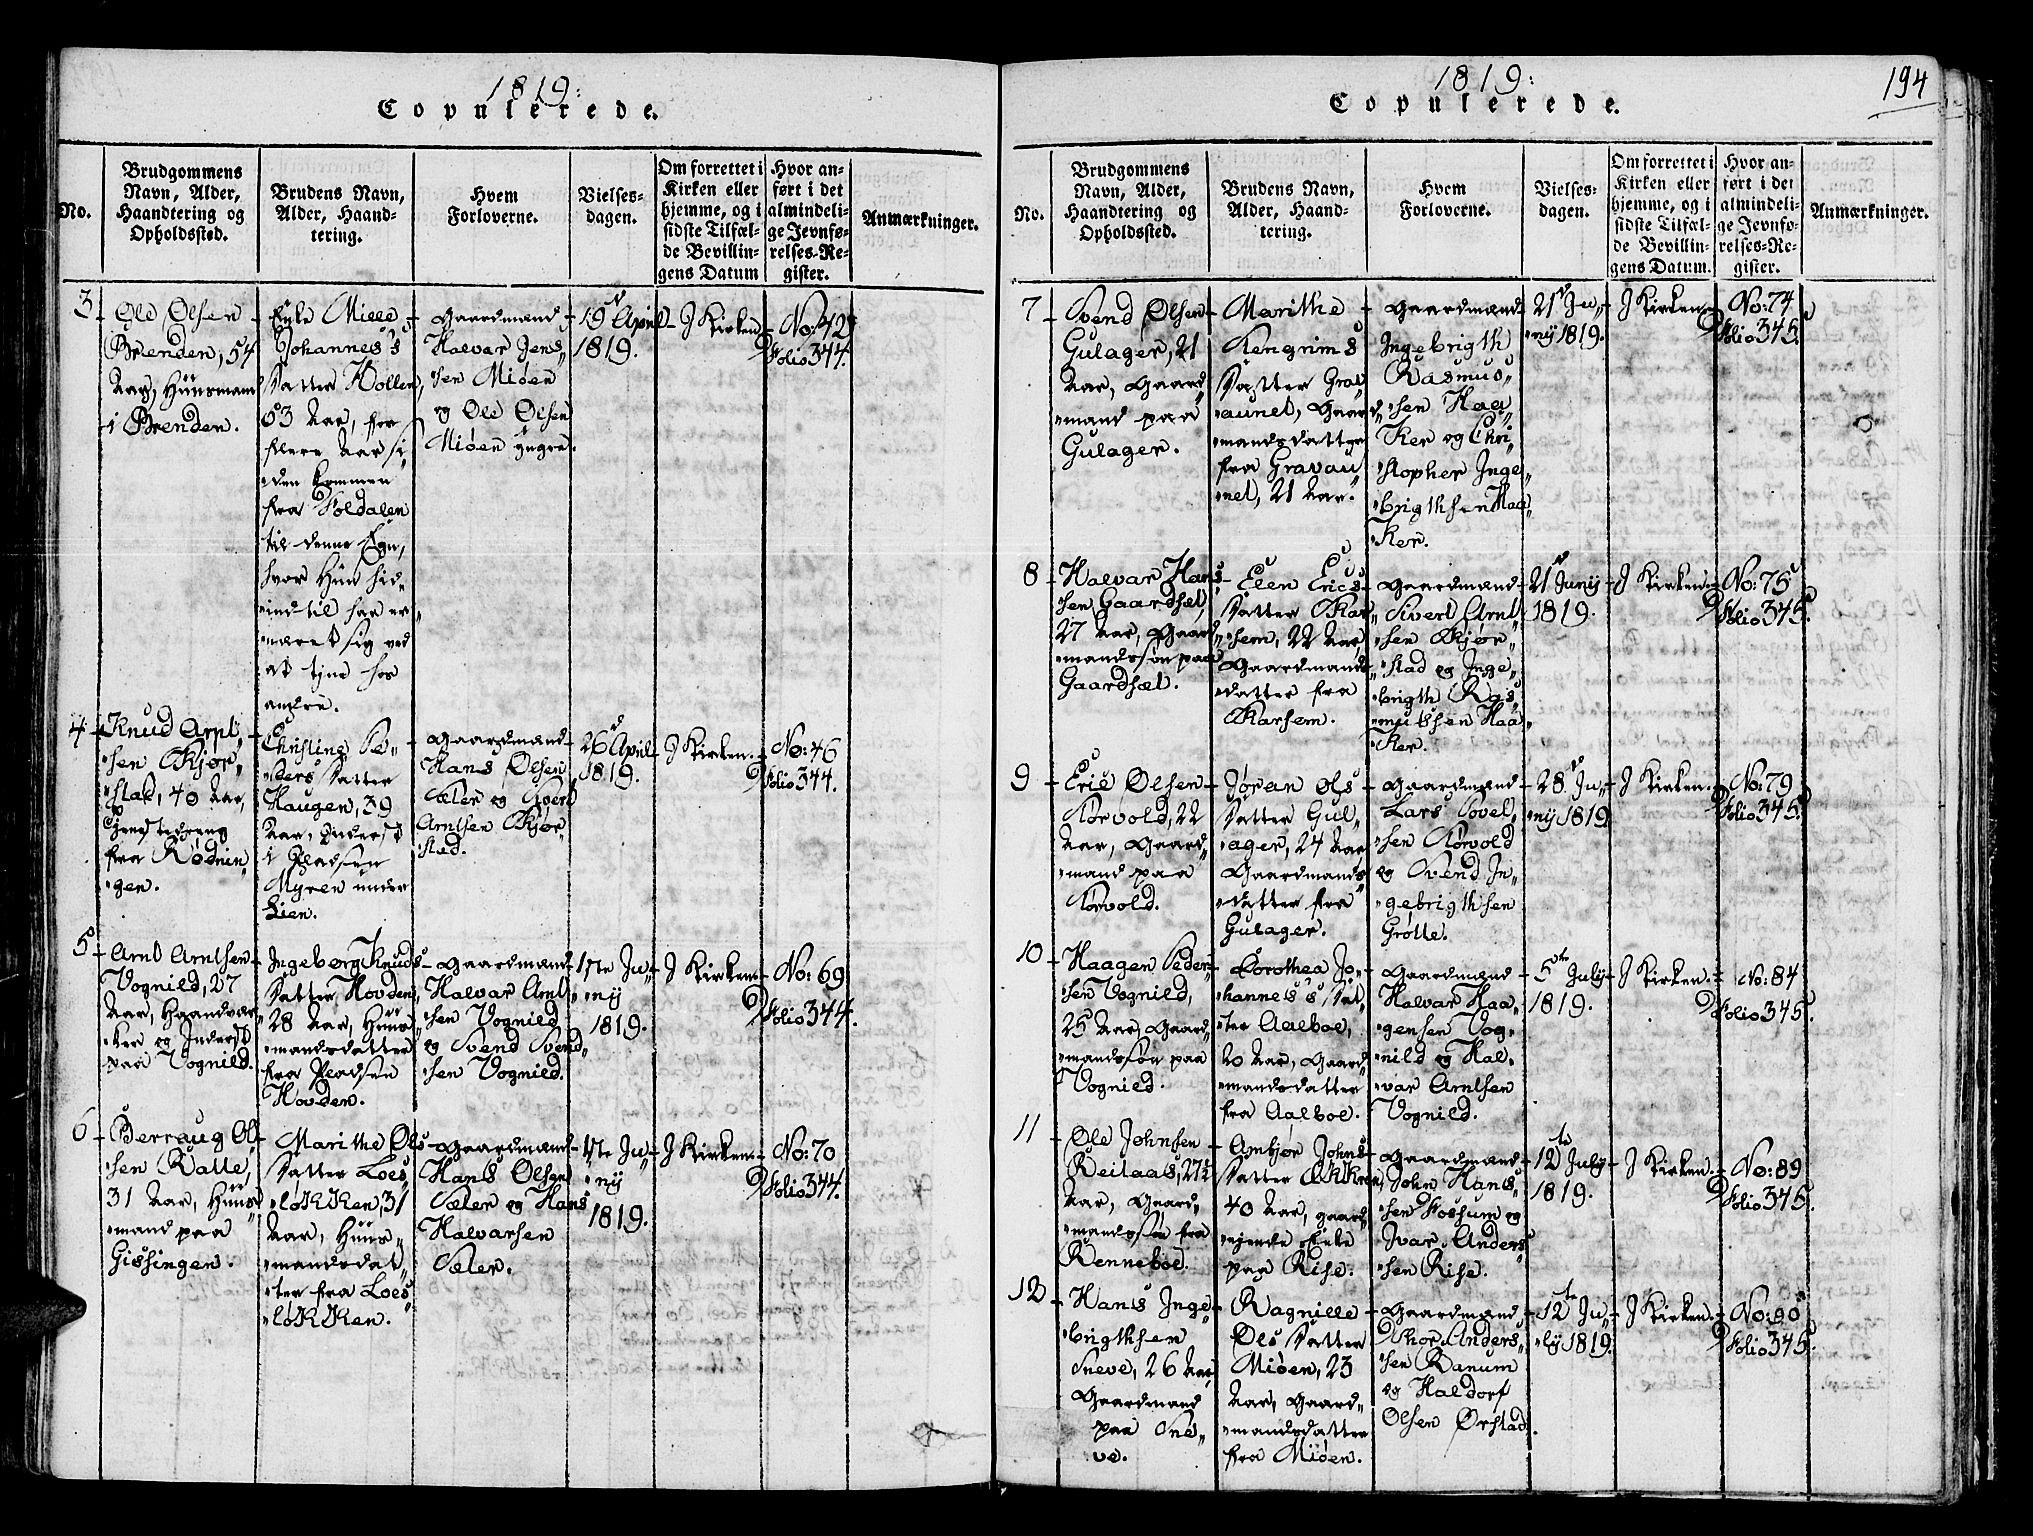 1819:
Copulerede.
No.
Brudgommens
Navn, Alder,
Haandtering og
Opholdssted.
Brudens Navn,
Alder, Haand-
tering.
Hvem
Forloverne.
Vielses-
dagen.
Om forrettet i
Kirken eller
hjemme, og i
sidste Tilfæl-
de Bevillin-
gens Datum
Hvor an-
ført i det
almindeli-
ge Jevnfø-
relses-Re-
gister.
Anmærkninger.
3
Ole Olsen
Brenden, 54
Aar, Huusmand
i Brenden.
Enke Mille
Johannes's
Datter Wollen,
53 Aar, for
flere Aar si-
den kommen
fra Foldalen
til denne Egn,
hvor Hun hid-
indtil har er-
næret sig ved
at tjene hos
andre.
Gaardmænd
Halvar Jens-
sen Miøen
og Ole Olsen
Miøen yngre.
19d April
1819.
J Kirken
No: 42
Folio 344.
4
Knud Arnt-
sen Skjør-
stad, 40 Aar,
Tjenstedreng
fra Rødnin-
gen.
Christine Pe-
ders Datter
Haugen, 39
Aar, Inderst
i Pladsen
Myren under
Lien.
Gaardmænd
Hans Olsen
Sæler og Sivert
Arntsen Skjør-
stad.
26d April
1819.
J Kirken.
No: 46
Folio 344.
5
Arnt Arntsen
Vognild, 27
Aar, Haandvær-
ker og Inderst
paa Vognild.
Ingeborg Knuds
Datter Hovden,
28 Aar, Huus-
mandsdatter
fra Pladsen
Hovden.
Gaardmænd
Halvar Arnt-
sen Vognild
og Svend Svend-
sen Vognild.
17te Ju-
nij
1819.
J Kirken
No: 69
Folio 344.
6
Berraug Ol-
sen Ratte,
31 Aar, Huus-
mand paa
Gissingen.
Marithe Ols
Datter Loes-
løkken, 31
Aar, Huus-
mandsdat-
ter fra Loes-
løkken.
Gaardmænd
Hans Olsen
Sæler og Hans
Halvarsen
Sæler.
17te Ju-
nij
1819.
J Kirken
No: 70
Folio 344.
1819:
194
Copulerede.
No.
Brudgommens
Navn, Alder,
Haandtering og
Opholdssted.
Brudens Navn,
Alder, Haand-
tering.
Hvem
Forloverne.
Vielses-
dagen.
Om forrettet i
Kirken eller
hjemme, og i
sidste Tilfæl-
de Bevillin-
gens Datum.
Hvor an-
ført i det
almindeli-
ge Jevnfø-
relses-Re-
gister.
Anmærkninger.
7
Svend Olsen
Gulager, 21
Aar, Gaard-
mand paa
Gulager.
Marithe
Kengrims
Datter Grav-
aunet, Gaard-
mandsdatter
fra Gravau-
net, 21 Aar.
Gaardmænd
Ingebrigth
Rasmus-
sen Haa-
ker og Chri-
stopher Inge-
brigthsen Haa-
ker.
21d Ju-
nij 1819.
J Kirken.
No: 74
Folio 345.
8
Halvar Han-
sen Gaardsæt,
27 Aar, Gaard-
mandssøn paa
Gaardsæt.
Elen Erics
Datter Skar-
sem, 22 Aar,
Gaardmands-
datter fra
Skarsem.
Gaardmænd
Sivert Arnt-
sen Skjør-
stad og Inge-
brigth Ras-
mussen Haa-
ker.
21d Junij
1819.
J Kirken.
No: 75
Folio 345.
9
Eric Olsen
Sørvold, 22
Aar, Gaard-
mand paa
Sørvold.
Jøran Ols
Datter Gul-
ager, 24 Aar,
Gaardmands-
datter fra
Gulager.
Gaardmænd
Lars Povel-
sen Sørvold
og Svend In-
gebrigthsen
Grøtte.
28d Ju-
nij 1819.
J Kirken.
No: 79
Folio 345.
10
Haagen Peder-
sen Vognild,
25 Aar, Gaard-
mandssøn paa
Vognild.
Dorothea Jo-
hannes's Dat-
ter Aalboe,
20 Aar, Gaard-
mandsdatter
fra Aalboe.
Gaardmænd
Halvar Haa-
gensen Vog-
nild og Hal-
var Arntsen
Vognild.
5te July
1819.
J Kirken.
No: 84
Folio 345.
11
Ole Johnsen
Reilaas, 27½
Aar, Gaard-
mandssøn fra
Renneboe.
Anbjør Johns
Datter
40 Aar, gaard-
ejende Enke
paa Rise.
Gaardmænd
John Hans-
sen Fossum og
Ivar Anders-
sen Rise.
12te July
1819.
J Kirken.
No: 89
Folio 345.
12
Hans Inge-
brigthsen
Sneve, 26 Aar
Gaardmand
paa Sne-
ve.
Ragnille
Ols Datter
Miøen, 23
Aar, Gaard-
mandsdatter
fra Miøen.
Gaardmænd
Thor Anders-
sen Ranum
og Haldorf
Olsen Ørstad.
12te Ju-
ly 1819.
J Kirken.
No: 90
Folio 345.